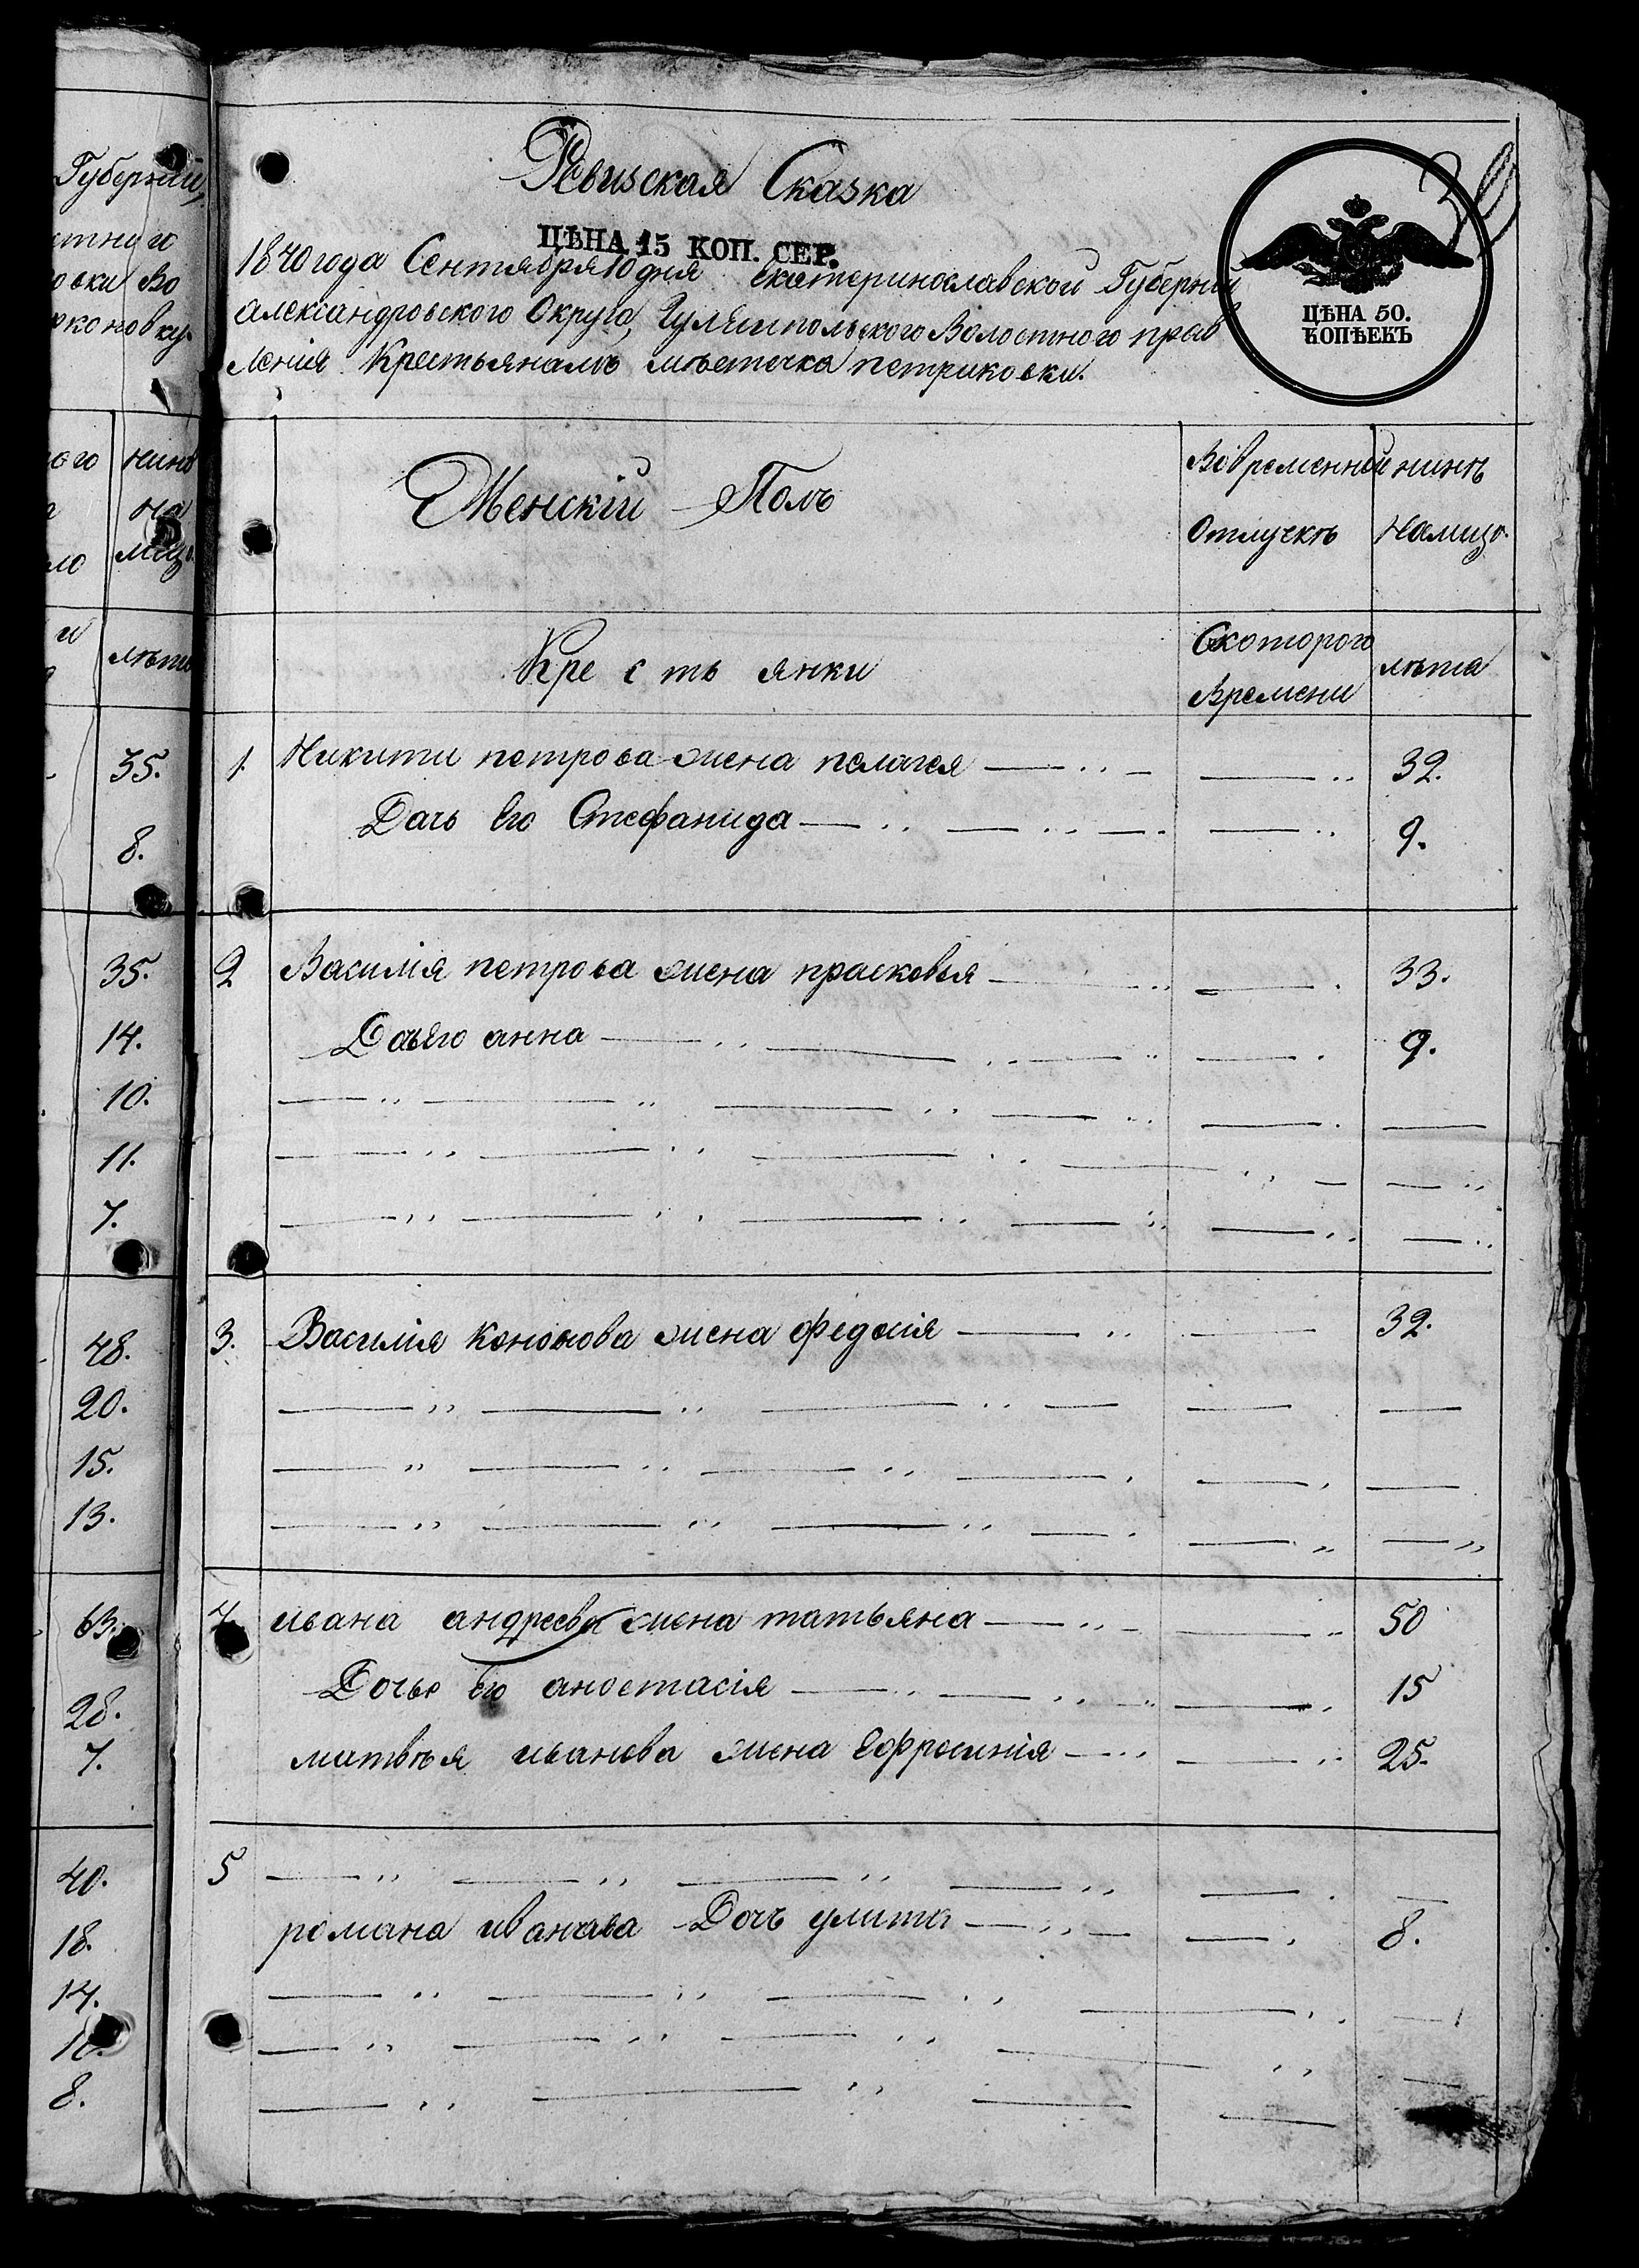 Губерніи,
Во
нине
на
лицо.
лета
35.
8.
35.
14.
10.
11.
7.
48.
20.
15.
13.
63.
28.
7.
40.
18.
14.
8.
Ревизская Сказка
39
ЦѢНА 15 КОП. СЕР.
ЦѢНА 50.
КОПѢЕКЪ
1840 года Сентября 10 дня Екатеринославской Губерніи
александровского Округа, Гуляипольского Волостного прав
ленія Крестьянамъ мѣстечка петриковки.
Женскій Полъ
Вовременной
Отлучкѣ
нинѣ
Налицо.
Крестьянки
Скоторого
Времени
лѣта
1. Никити петрова жена пелагея 32.
Дочь Его Стефанида 9.
2 Василія петрова жена прасковья 33.
Дочь Его анна 9.
3. Василія Кононова жена федосія 32.
4. ивана андреева жена татьяна 50
Дочь Его анастасія 15
матвѣя иванова жена Ефросинія 25.
5
романа иванова Дочъ улита 8.